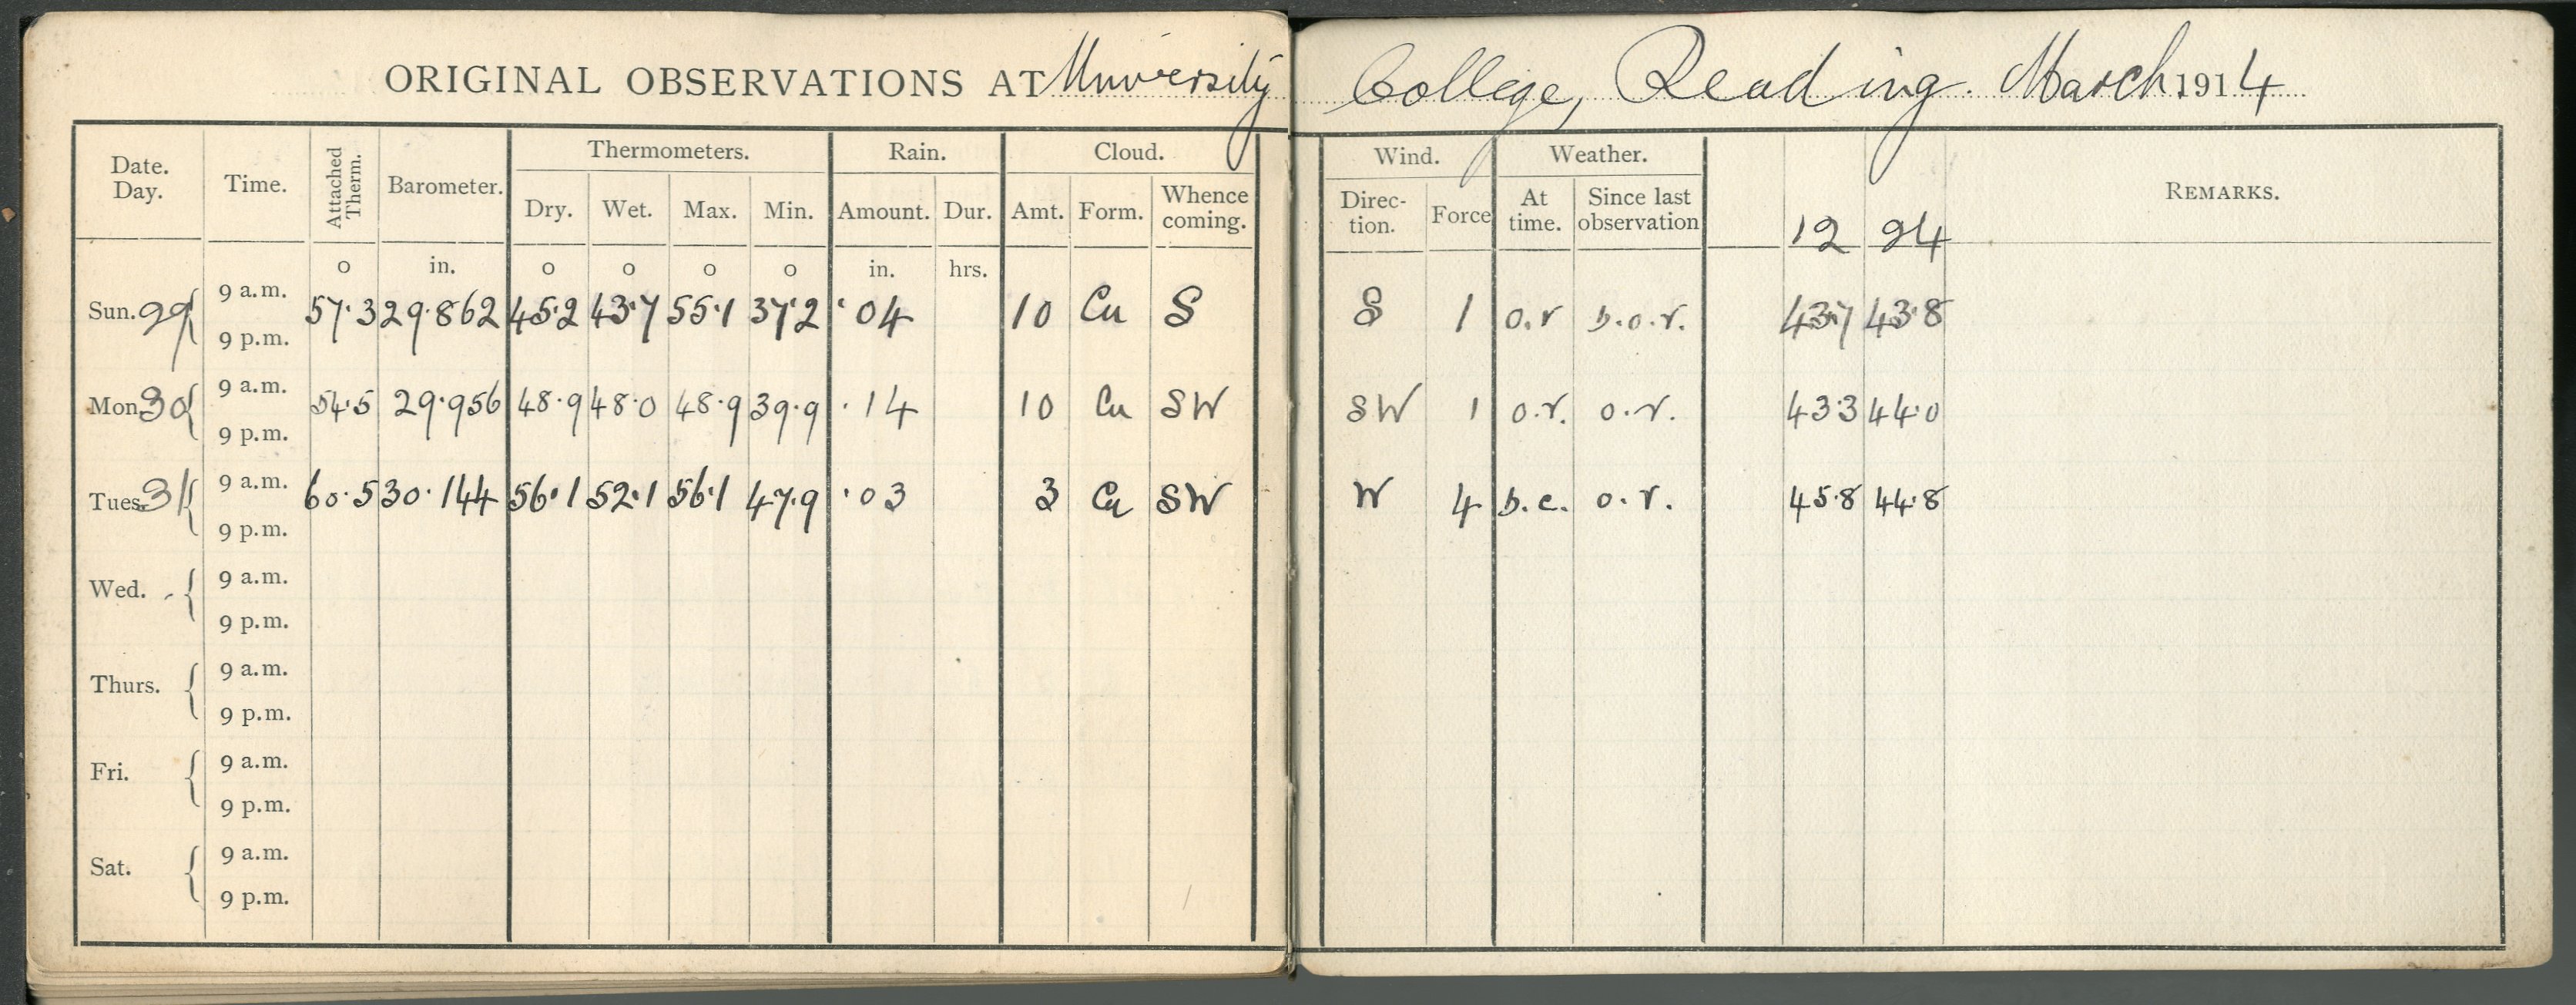 ORIGINAL OBSERVATIONS AT University College, Reading. March 1914
Date. Day. Time. Attached Therm. Barometer. Thermometers. Rain. Cloud. Wind. Weather. REMARKS.
Dry. Wet. Max. Min. Amount. Dur. Amt. Form. Whence coming. Direc-tion. Force At time. Since last observation 12 24
o in. o o o o in. hrs.
Sun. 29 9 a.m. 57.3 29.862 45.2 43.7 55.1 37.2 .04 10 Cu S S 1 o.r b.o.r. 43.7 43.8
9 p.m.
Mon. 30 9 a.m. 54.5 29.956 48.9 48.0 48.9 39.9 .14 10 Cu SW SW 1 o.r. o.r. 43.3 44.0
9 p.m.
Tues. 31 9 a.m. 60.5 30.144 56.1 52.1 56.1 47.9 .03 3 Cu SW W 4 b.c. o.r. 45.8 44.8
9 p.m.
Wed. 9 a.m.
9 p.m.
Thurs. 9 a.m.
9 p.m.
Fri. 9 a.m.
9 p.m.
Sat. 9 a.m.
9 p.m.